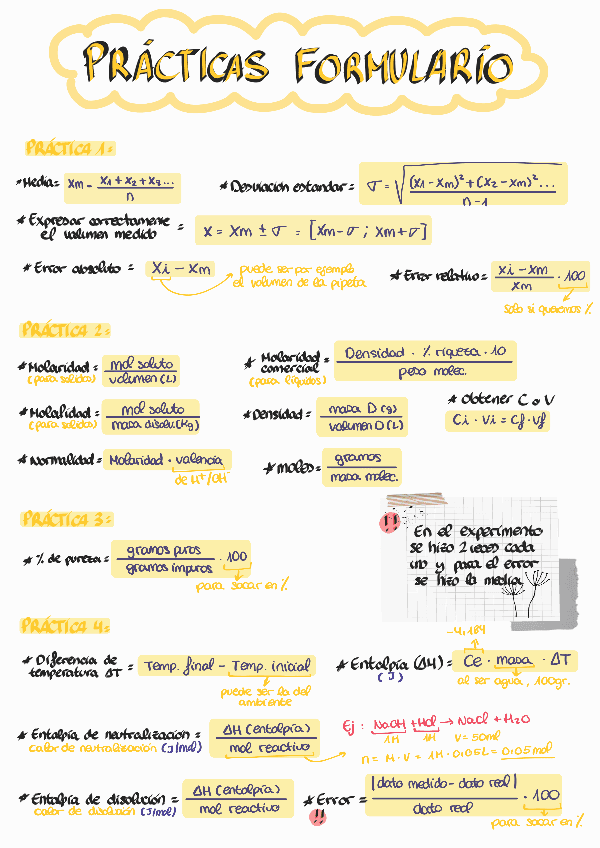 PRÁCTICAS FORMULARIO
PRÁCTICA 1:
*Media= Xm = (X1 + X2 + X3...)/n
* Desviación estandar = σ = √((X1 - Xm)² + (X2 - Xm)² ...)/(n-1)
* Expresar correctamente el volumen medido = X = Xm ± σ = [Xm-σ ; Xm+σ]
* Error absoluto = Xi - Xm
puede ser por ejemplo
el volumen de la pipeta
* Error relativo = (Xi - Xm)/Xm · 100
Solo si queremos %
PRÁCTICA 2:
* Molaridad = mol soluto/volumen (L)
(para solidos)
* Molaridad comercial = Densidad · % riqueza · 10/peso molec.
(para liquidos)
* Molalidad = mol soluto/masa disolv.(Kg)
(para solidos)
* Densidad = masa D (g)/volumen D (L)
* Obtener C o V
Ci · Vi = Cf · Vf
* Normalidad = Molaridad · valencia
de H⁺/OH⁻
* moles = gramos/masa molec.
PRÁCTICA 3:
* % de pureza = gramos puros/gramos impuros · 100
para sacar en %
!!
En el experimento
se hizo 2 veces cada
uno y para el error
se hizo la media
PRÁCTICA 4:
* Diferencia de temperatura ΔT = Temp. final - Temp. inicial
puede ser la del
ambiente
-4,184
* Entalpía (ΔH) = Ce · masa · ΔT
(J)
al ser agua, 100gr.
* Entalpía de neutralización = ΔH (entalpía)/mol reactivo
calor de neutralización (J/mol)
Ej : NaOH + HCl → NaCl + H2O
1M 1M V = 50ml
n = M · V = 1M · 0.05L = 0.05 mol
* Entalpía de disolución = ΔH (entalpía)/mol reactivo
calor de disolución (J/mol)
* Error = |dato medido - dato real|/dato real · 100
!!
para sacar en %